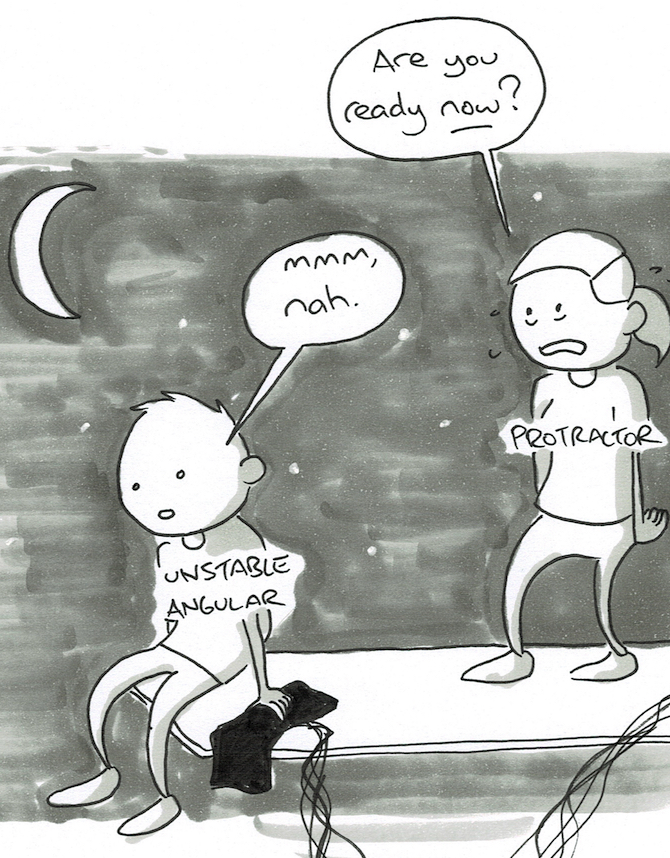 Are you
ready now?
mmm,
nah.
PROTRACTOR
UNSTABLE
ANGULAR